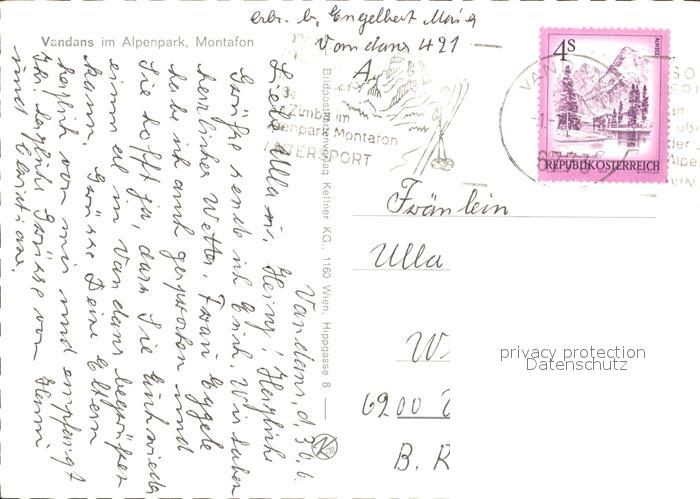 erb. b. Engelbert Maier
Vandans im Alpenpark, Montafon
Vandans 421
A
4s
ALMSEE
REPUBLIK ÖSTERREICH
VAN
Zimba im
enpark Montafon
WINTERSPORT
Bildpostkartenverlag Kellner KG., 1160 Wien, Hippgasse 8
Vandans, d. 30.6.
Liebe Ulla u. Heinz! Herzliche
Grüsse sende ich Euch. Wir haben
herrliches Wetter. Frau Eggele
habe ich auch gesprochen und
Sie hofft ja, dass Sie Euch wieder
einmal in Vandans begrüssen
kann. Grüsse Deine Eltern
herzlich von mir und empfangt
Ihr herzliche Grüsse von Hanni
und Christian.
Fräulein
Ulla
W
6200
B. R
privacy protection
Datenschutz